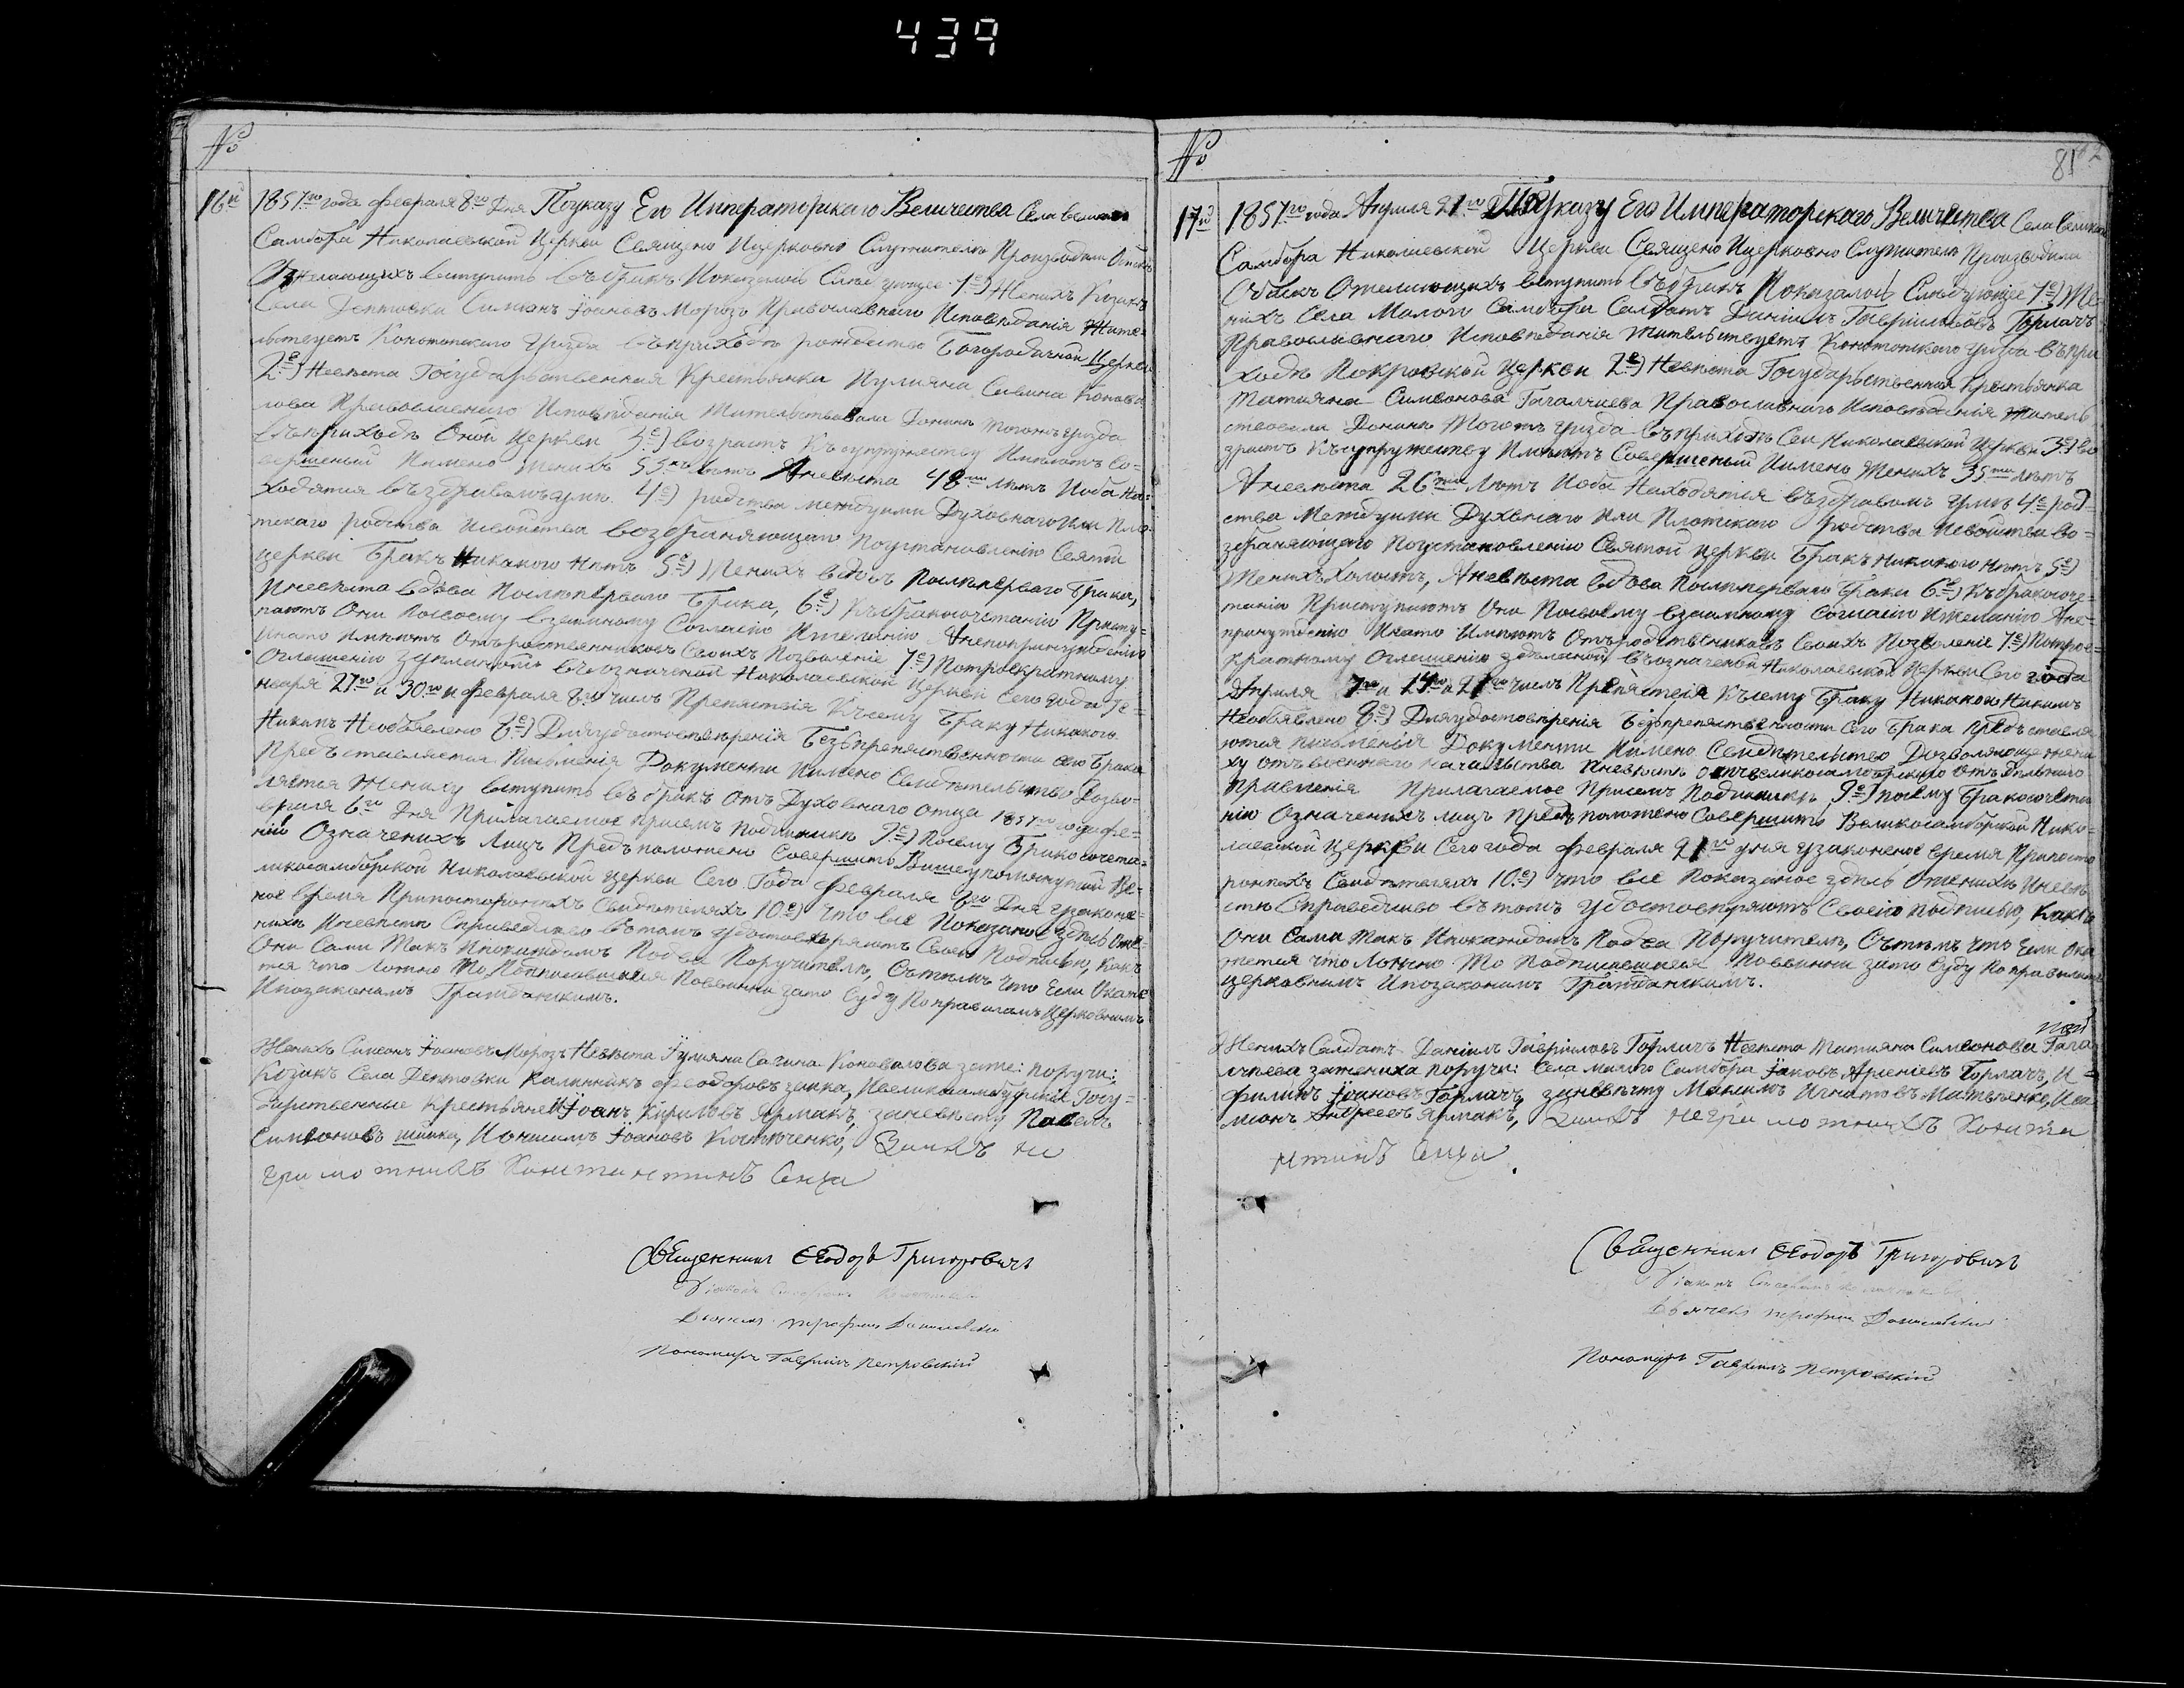 439
№
16й
1857го года февраля 8го Дня Поуказу Его Императорскаго Величества Села великого
Самбора Николаевской Церкви Священо Ицерковно Служители Производили Обыскъ
Ожелающихъ вступить въ бракъ Показалось Следующее 1е) Женихъ Козакъ
Села Дептовки Симеонъ Іоановъ Морозъ Православнаго Исповѣданія Жите-
льствуетъ Конотопскаго уѣзда въ приходѣ рождество Богородичной Церкви
2е) Невѣста Государственная Крестьянка Иулияна Савина Конова
лова Православнаго Исповѣданія Жительствовала Донинѣ Тогожъ уѣзда
въ приходѣ Оной Церкви 3е) возрастъ Къ супружеству Имѣютъ Со-
вершеный Имено Женихъ 55ть лѣтъ Аневѣста 48мь лѣтъ Иоба На-
ходятся въ здравомъ умѣ. 4е) родства между ими Духовнаго Или Пло-
тскаго родства Исвойства возбраняющаго Поустановленію Святой
церкви Бракъ Никакого Нѣтъ 5е) Женихъ вдовъ Послѣ перваго Брака,
Иневѣста вдова Послѣ перваго Брака, 6е) Къ бракосочетанію Присту-
паютъ Они Посвоему взаимному Согласію Ижеланію Анепопринужденію
Инато имѣютъ Отъ родственниковъ Своихъ Позволеніе 7е) Потроекратному
Оглашенію зделаномъ въ означеной Николаевской Церкви Сего года Ге-
нваря 27го и 30го и февраля 8го числ Препятствія Къ сему Браку Никакого
Никѣмъ Необявлено 8е) Для удостовѣренія Безъ препятственности сего Брака
Предъ ставляются Писменія Документи Имено Свидѣтельство Дозво-
ляется Жениху вступить въ бракъ отъ Духовнаго отца 1857го года фе-
враля 6го Дня Прилагаемое присемъ Подлиникѣ 9е) Посему Бракосочета-
нію Означенихъ Лицъ Предъ положено Совершить Вишеупомянутой Ве-
ликосамборской Николаевской церкви Сего Года февраля 8го Дня узаконе-
ное время Припостороннихъ Свидѣтеляхъ 10е) что все Показаное здѣсь Оже-
нихѣ Иневѣстѣ Справедливо въ томъ удостовѣряютъ Своею Подписью, Какъ
Они Сами Такъ Ипокаждомъ Подва Поручителя, Сътѣмъ что Если Окаже
тся что Ложно То Подписавшиеся Повинни зато Суду По правиламъ Церковнимъ
Ипозаконамъ Гражданскимъ.
Женихъ Симеонъ Іоановъ Морозъ Невѣста Іулияна Савина Коновалова заже: поручи:
Козакъ Села Дептовки Калинникъ Феодоровъ заика, Ивеликосамбурский Госу-
дарственные Крестьяне Іоанъ Кириловъ Ярмакъ, заневѣсту Павелъ
Симеоновъ шийка, Ионисимъ Іоановъ Костюченко, Заихъ не
грамотнихъ Константинъ Сенха
Священникъ Ѳеодоръ Григоровичъ
Діаконъ
Дьячекъ трофим Данилевскій
Пономарь Гавріилъ Петровскій
№
81
17й
1857го года Апреля 21го Поуказу Его Императорскаго Величества Села Великого
Самбора Николаевской Церкви Священо Ицерковно Служители Производили
Обыскъ Ожелающихъ вступить въ бракъ Показалось Слѣдующее 1е) Же-
нихъ Села Малого Самбора Салдатъ Даніилъ Гавріиловъ Горлачъ
Православнаго Исповѣданія Жительствуетъ Конотопскаго уѣзда въ при
ходѣ Покровской Церкви 2е) Невѣста Государственная Крестьянка
Татияна Симеонова Гагалчиева Православнаго Исповѣданія Житель
ствовала Донинѣ Тогожъ уѣзда въ приходѣ Сей Николаевской Церкви 3е) во
зрастъ Къ супружеству Имѣютъ Совершеный Имено Женихъ 35ти лѣтъ
Аневѣста 26ти Лѣтъ Иоба Находятся въ здравомъ умѣ 4е род-
ства Между ими Духовнаго Или Плотскаго родства Исвойства во-
збраняющаго Поустановленію Святой церкви Бракъ никакого нѣтъ 5е)
Женихъ Холостъ, Аневѣста вдова Послѣ перваго Брака 6е) Къ бракосоче-
танію Приступаютъ Они Посвоему взаимному Согласію Ижеланію Ане-
принужденію Инато Имѣютъ Отъ родственниковъ Своихъ Позволеніе 7е) Потрое-
кратному Оглашенію зделаной въ означеной Николаевской Церкви Сего года
Апреля 7го и 14го и 21го числъ Препятствія Къ сему Браку Никакого Никѣмъ
Необявлено 8е) Для удостовѣренія Безъ препятственности Сего Брака Предъ ставля
ются писменія Документи Имено Свидѣтельство Дозволяюще жени
ху отъ военнаго начальства Иневѣстѣ отъ великосамборскаго Отъ дѣльнаго
Правленія Прилагаемое Присемъ Подлиникѣ 9е) посему бракосочета
нію Означенихъ лицъ предъ положено Совершить Великосамборской Нико-
лаевской церкви Сего года февраля 21го дня узаконеное время Припосто
роннихъ Свидѣтеляхъ 10е) что все Показаное здѣсь Оженихѣ Иневѣ-
стѣ Справедливо въ томъ удостовѣряютъ Своею Подписью, какъ
Они Сами такъ Ипокаждомъ Подва Поручителя, Сътѣмъ что Если Ока
жется что Ложно То Подписавшиеся Повинни зато Суду По правиламъ
церковнимъ Ипозаконамъ Гражданскимъ.
Женихъ Салдатъ Даніилъ Гавріиловъ Горлачъ Невѣста Татияна Симеонова Гага
лчиева зажениха поручи: Села малого Самбора Іаковъ Арсеніевъ Горлачъ, И
Филипъ Іоановъ Горлачъ, заневѣсту Максимъ Игнатовъ Матвѣенко, Иси
меонъ Андреевъ Ярмакъ, Заихъ неграмотнихъ Конста
нтинъ Сенха
Священникъ Ѳеодоръ Григоровичъ
Діаконъ
Дьячекъ трофим Данилевскій
Пономарь Гавріилъ Петровскій